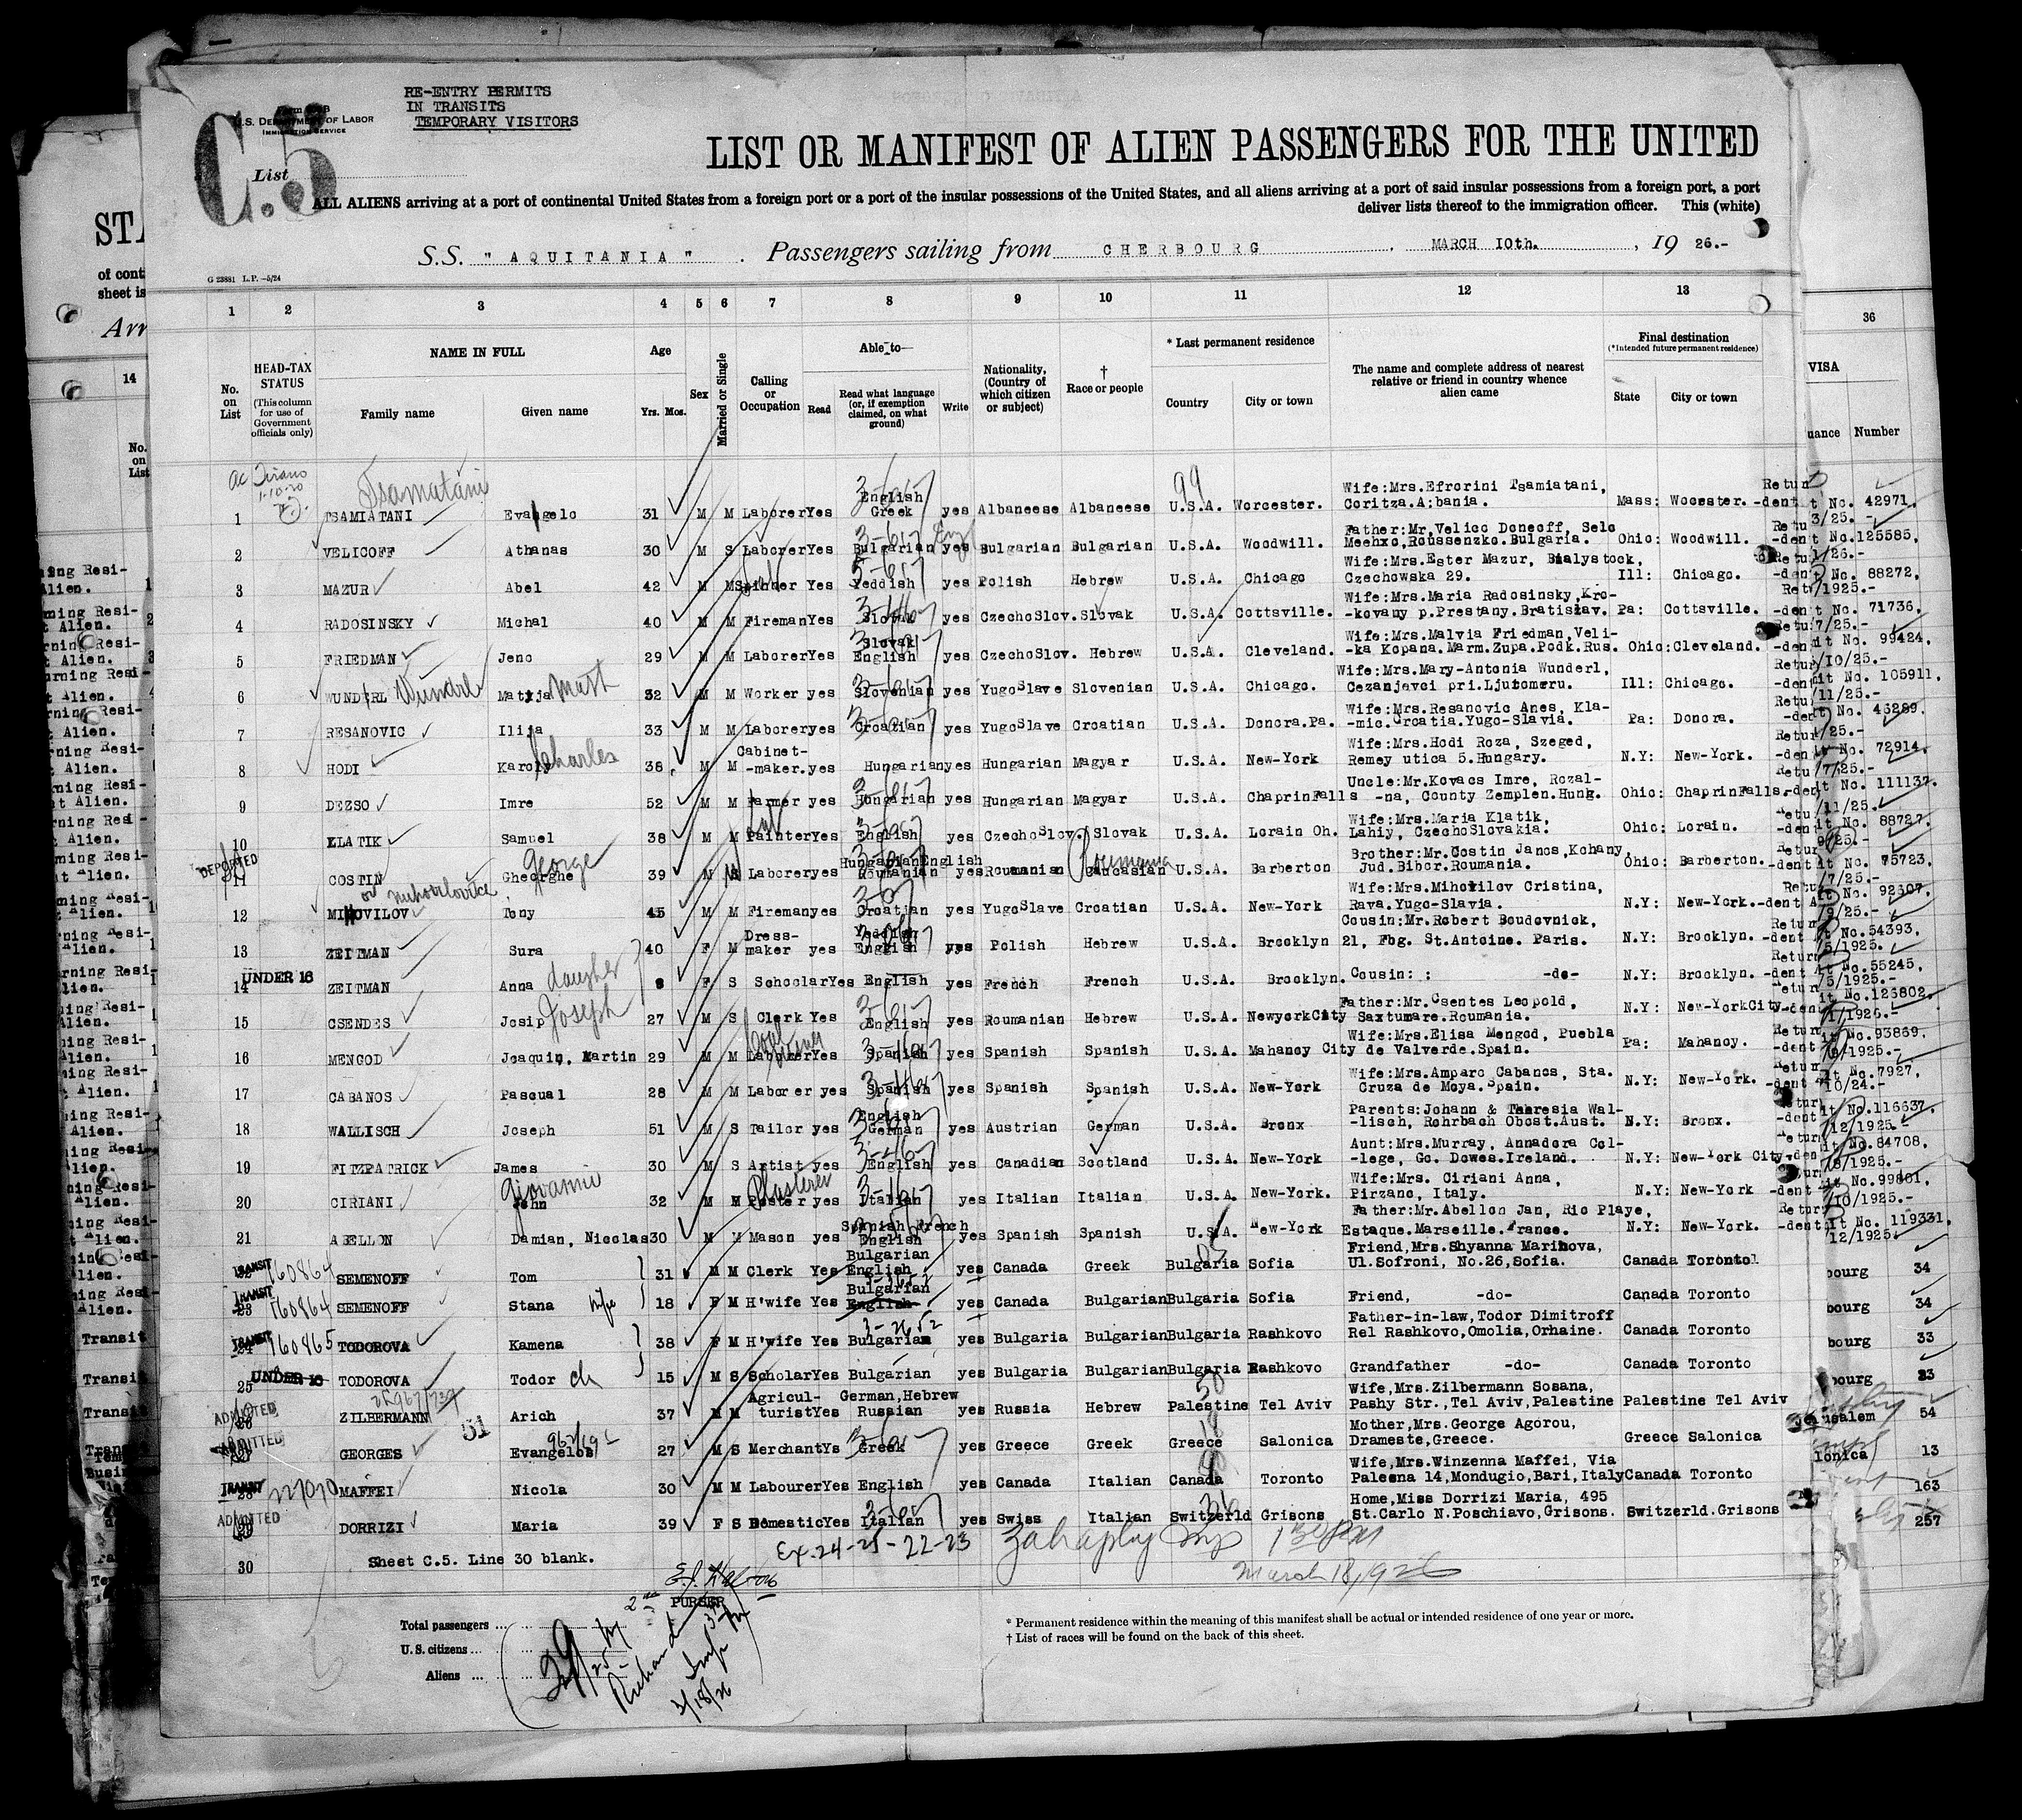 RE-ENTRY PERMITS
IN TRANSITS
TEMPORARY VISITORS
U.S. DEPARTMENT OF LABOR
IMMIGRATION SERVICE
C.5
List
LIST OR MANIFEST OF ALIEN PASSENGERS FOR THE UNITED
ALL ALIENS arriving at a port of continental United States from a foreign port or a port of the insular possessions of the United States, and all aliens arriving at a port of said insular possessions from a foreign port, a port
deliver lists thereof to the immigration officer. This (white)
S.S. "AQUITANIA". Passengers sailing from CHERBOURG, MARCH 10th., 19 26.-
G 23881 L.P.—5/24
1 2 3 4 5 6 7 8 9 10 11 12 13
No. on List
HEAD-TAX STATUS (This column for use of Government officials only)
NAME IN FULL
Family name Given name
Age
Yrs. Mos.
Sex
Married or Single
Calling or Occupation
Able to—
Read Read what language (or, if exemption claimed, on what ground) Write
Nationality, (Country of which citizen or subject)
† Race or people
* Last permanent residence
Country City or town
The name and complete address of nearest relative or friend in country whence alien came
Final destination
(*Intended future permanent residence)
State City or town
Tsamatani
1 TSAMIATANI Evangelo 31 M M Laborer Yes English Greek yes Albaneese Albaneese U.S.A. Worcester. Wife:Mrs.Efrorini Tsamiatani, Coritza.Albania. Mass: Worester. No. 42971.
2 VELICOFF Athanas 30 M S Laborer Yes Bulgarian yes Bulgarian Bulgarian U.S.A. Woodwill. Father:Mr.Velico Doneoff, Selo Meehxo,Roussenzko.Bulgaria. Ohio: Woodwill. No.125585.
3 MAZUR Abel 42 M M Spinner Yes Yeddish yes Polish Hebrew U.S.A. Chicago Wife:Mrs.Ester Mazur, Bialystock, Czechowska 29. Ill: Chicago. No. 88272.
4 RADOSINSKY Michal 40 M M Fireman Yes Slovak yes CzechoSlov. Slovak U.S.A. Cottsville. Wife:Mrs.Maria Radosinsky,Kro- -kovany p.Prestany.Bratislav. Pa: Cottsville. No. 71736.
5 FRIEDMAN Jeno 29 M M Laborer Yes Slovak English yes CzechoSlov. Hebrew U.S.A. Cleveland. Wife:Mrs.Malvia Friedman,Veli- -ka Kopana.Marm.Zupa.Podk.Rus. Ohio: Cleveland. No. 99424.
6 WUNDERL Wunderl Matija 32 M M Worker yes Slovenian yes YugoSlave Slovenian U.S.A. Chicago. Wife:Mrs.Mary-Antonia Wunderl, Cezanjevci pri.Ljutomeru. Ill: Chicago. No. 105911.
7 RESANOVIC Ilija 33 M M Laborer yes Croatian yes YugoSlave Croatian U.S.A. Donora.Pa. Wife:Mrs.Resanovic Anes, Kla- -mic.Croatia.Yugo-Slavia. Pa: Donora. No. 46289.
8 HODI Karoly Charles 38 M M Cabinet- -maker. yes Hungarian yes Hungarian Magyar U.S.A. New-York Wife:Mrs.Hodi Roza, Szeged, Remey utica 5.Hungary. N.Y: New-York. No. 72914.
9 DEZSO Imre 52 M M Farmer yes Hungarian yes Hungarian Magyar U.S.A. ChaprinFalls Uncle:Mr.Kovacs Imre, Rozal- -na, County Zemplen.Hung. Ohio: ChaprinFalls. No. 111137.
10 KLATIK Samuel 38 M M Painter Yes English yes CzechoSlov. Slovak U.S.A. Lorain Oh. Wife:Mrs.Maria Klatik, Lahiy, CzechoSlovakia. Ohio: Lorain. No. 88727.
DEPORTED
11 COSTIN Gheorghe George 39 M Laborer yes Hungarian English Roumanian yes Roumanian Caucasian Roumania U.S.A. Barberton Brother:Mr.Costin Janos,Kohany, Jud.Bihor.Roumania. Ohio: Barberton. No. 75723.
12 MIHOVILOV Tony 45 M M Fireman yes Croatian yes YugoSlave Croatian U.S.A. New-York Wife:Mrs.Mihovilov Cristina, Rava.Yugo-Slavia. N.Y: New-York. No. 92307.
13 ZEITMAN Sura 40 F M Dress- maker yes Yeddish English yes Polish Hebrew U.S.A. Brooklyn Cousin:Mr.Robert Boudovnick, 21, Fbg. St.Antoine. Paris. N.Y: Brooklyn. No.54393.
UNDER 16
14 ZEITMAN Anna daughter 8 F S Schoolar Yes English yes French French U.S.A. Brooklyn. Cousin: : -do- N.Y: Brooklyn. No.55245.
15 CSENDES Josip Joseph 27 M S Clerk Yes English yes Roumanian Hebrew U.S.A. NewyorkCity Father:Mr.Csentes Leopold, Saxtumare.Roumania. N.Y: New-YorkCity No.123802.
16 MENGOD Joaquin, Martin 29 M M Laborer Yes Spanish yes Spanish Spanish U.S.A. Mahanoy City Wife:Mrs.Elisa Mengod, Puebla de Valverde.Spain. Pa: Mahanoy. No.93869.
17 CABANOS Pascual 28 M M Laborer yes Spanish yes Spanish Spanish U.S.A. New-York Wife:Mrs.Amparo Cabanos, Sta. Cruza de Moya.Spain. N.Y: New-York. No.7927.
18 WALLISCH Joseph 51 M S Tailor yes English German yes Austrian German U.S.A. Bronx Parents:Johann & Theresia Wal- -lisch, Rohrbach Obost.Aust. N.Y: Bronx. No.116637.
19 FITZPATRICK James 30 M S Artist yes English yes Canadian Scotland U.S.A. New-York Aunt:Mrs.Murray, Annadora Col- -lege, Go. Dowes.Ireland. N.Y: New-York City No.84708.
20 CIRIANI John Giovannie 32 M M Plasterer yes Italian yes Italian Italian U.S.A. New-York. Wife:Mrs. Ciriani Anna, Pirzano, Italy. N.Y: New York No.99801.
21 ABELLON Damian, Nicolas 30 M M Mason yes Spanish French English yes Spanish Spanish U.S.A. New-York Father:Mr.Abellon Jan, Rio Playe, Estaque.Marseille.france. N.Y: New-York. No. 119331.
TRANSIT 160864 SEMENOFF Tom 31 M M Clerk Yes Bulgarian English yes Canada Greek Bulgaria Sofia Friend,Mrs.Shyanna Marinova, Ul.Sofroni, No.26,Sofia. Canada Toronto 34
TRANSIT 23 160864 SEMENOFF Stana wife 18 F M H'wife Yes Bulgarian English yes Canada Bulgarian Bulgaria Sofia Friend, -do- Canada Toronto 34
TRANSIT 24 160865 TODOROVA Kamena 38 F M H'wife Yes Bulgarian yes Bulgaria Bulgarian Bulgaria Rashkovo Father-in-law,Todor Dimitroff Rel Rashkovo,Omolia,Orhaine. Canada Toronto 33
UNDER 16
25 TODOROVA Todor ch 15 M S Scholar Yes Bulgarian yes Bulgaria Bulgarian Bulgaria Rashkovo Grandfather -do- Canada Toronto 33
ADMITTED ZILBERMANN Arich 37 M M Agricul- turist Yes German,Hebrew Russian yes Russia Hebrew Palestine Tel Aviv Wife,Mrs.Zilbermann Sosana, Pashy Str.,Tel Aviv,Palestine Palestine Tel Aviv 54
ADMITTED GEORGES 51 Evangelos 27 M S Merchant Ys Greek yes Greece Greek Greece Salonica Mother,Mrs.George Agorou, Drameste,Greece. Greece Salonica 13
TRANSIT 28 MAFFEI Nicola 30 M M Labourer Yes English yes Canada Italian Canada Toronto Wife,Mrs.Winzenna Maffei, Via Paleena 14,Mondugio,Bari,Italy Canada Toronto 163
ADMITTED DORRIZI Maria 39 F S Domestic Yes Italian yes Swiss Italian Switzerld Grisons Home,Miss Dorrizi Maria, 495 St.Carlo N.Poschiavo,Grisons. Switzerld.Grisons 257
30 Sheet C.5. Line 30 blank.
Ex-24-25-22-23
March 18, 1926
PURSER
Total passengers
U.S. citizens
Aliens
* Permanent residence within the meaning of this manifest shall be actual or intended residence of one year or more.
† List of races will be found on the back of this sheet.
36
VISA
Number
14
No. on List